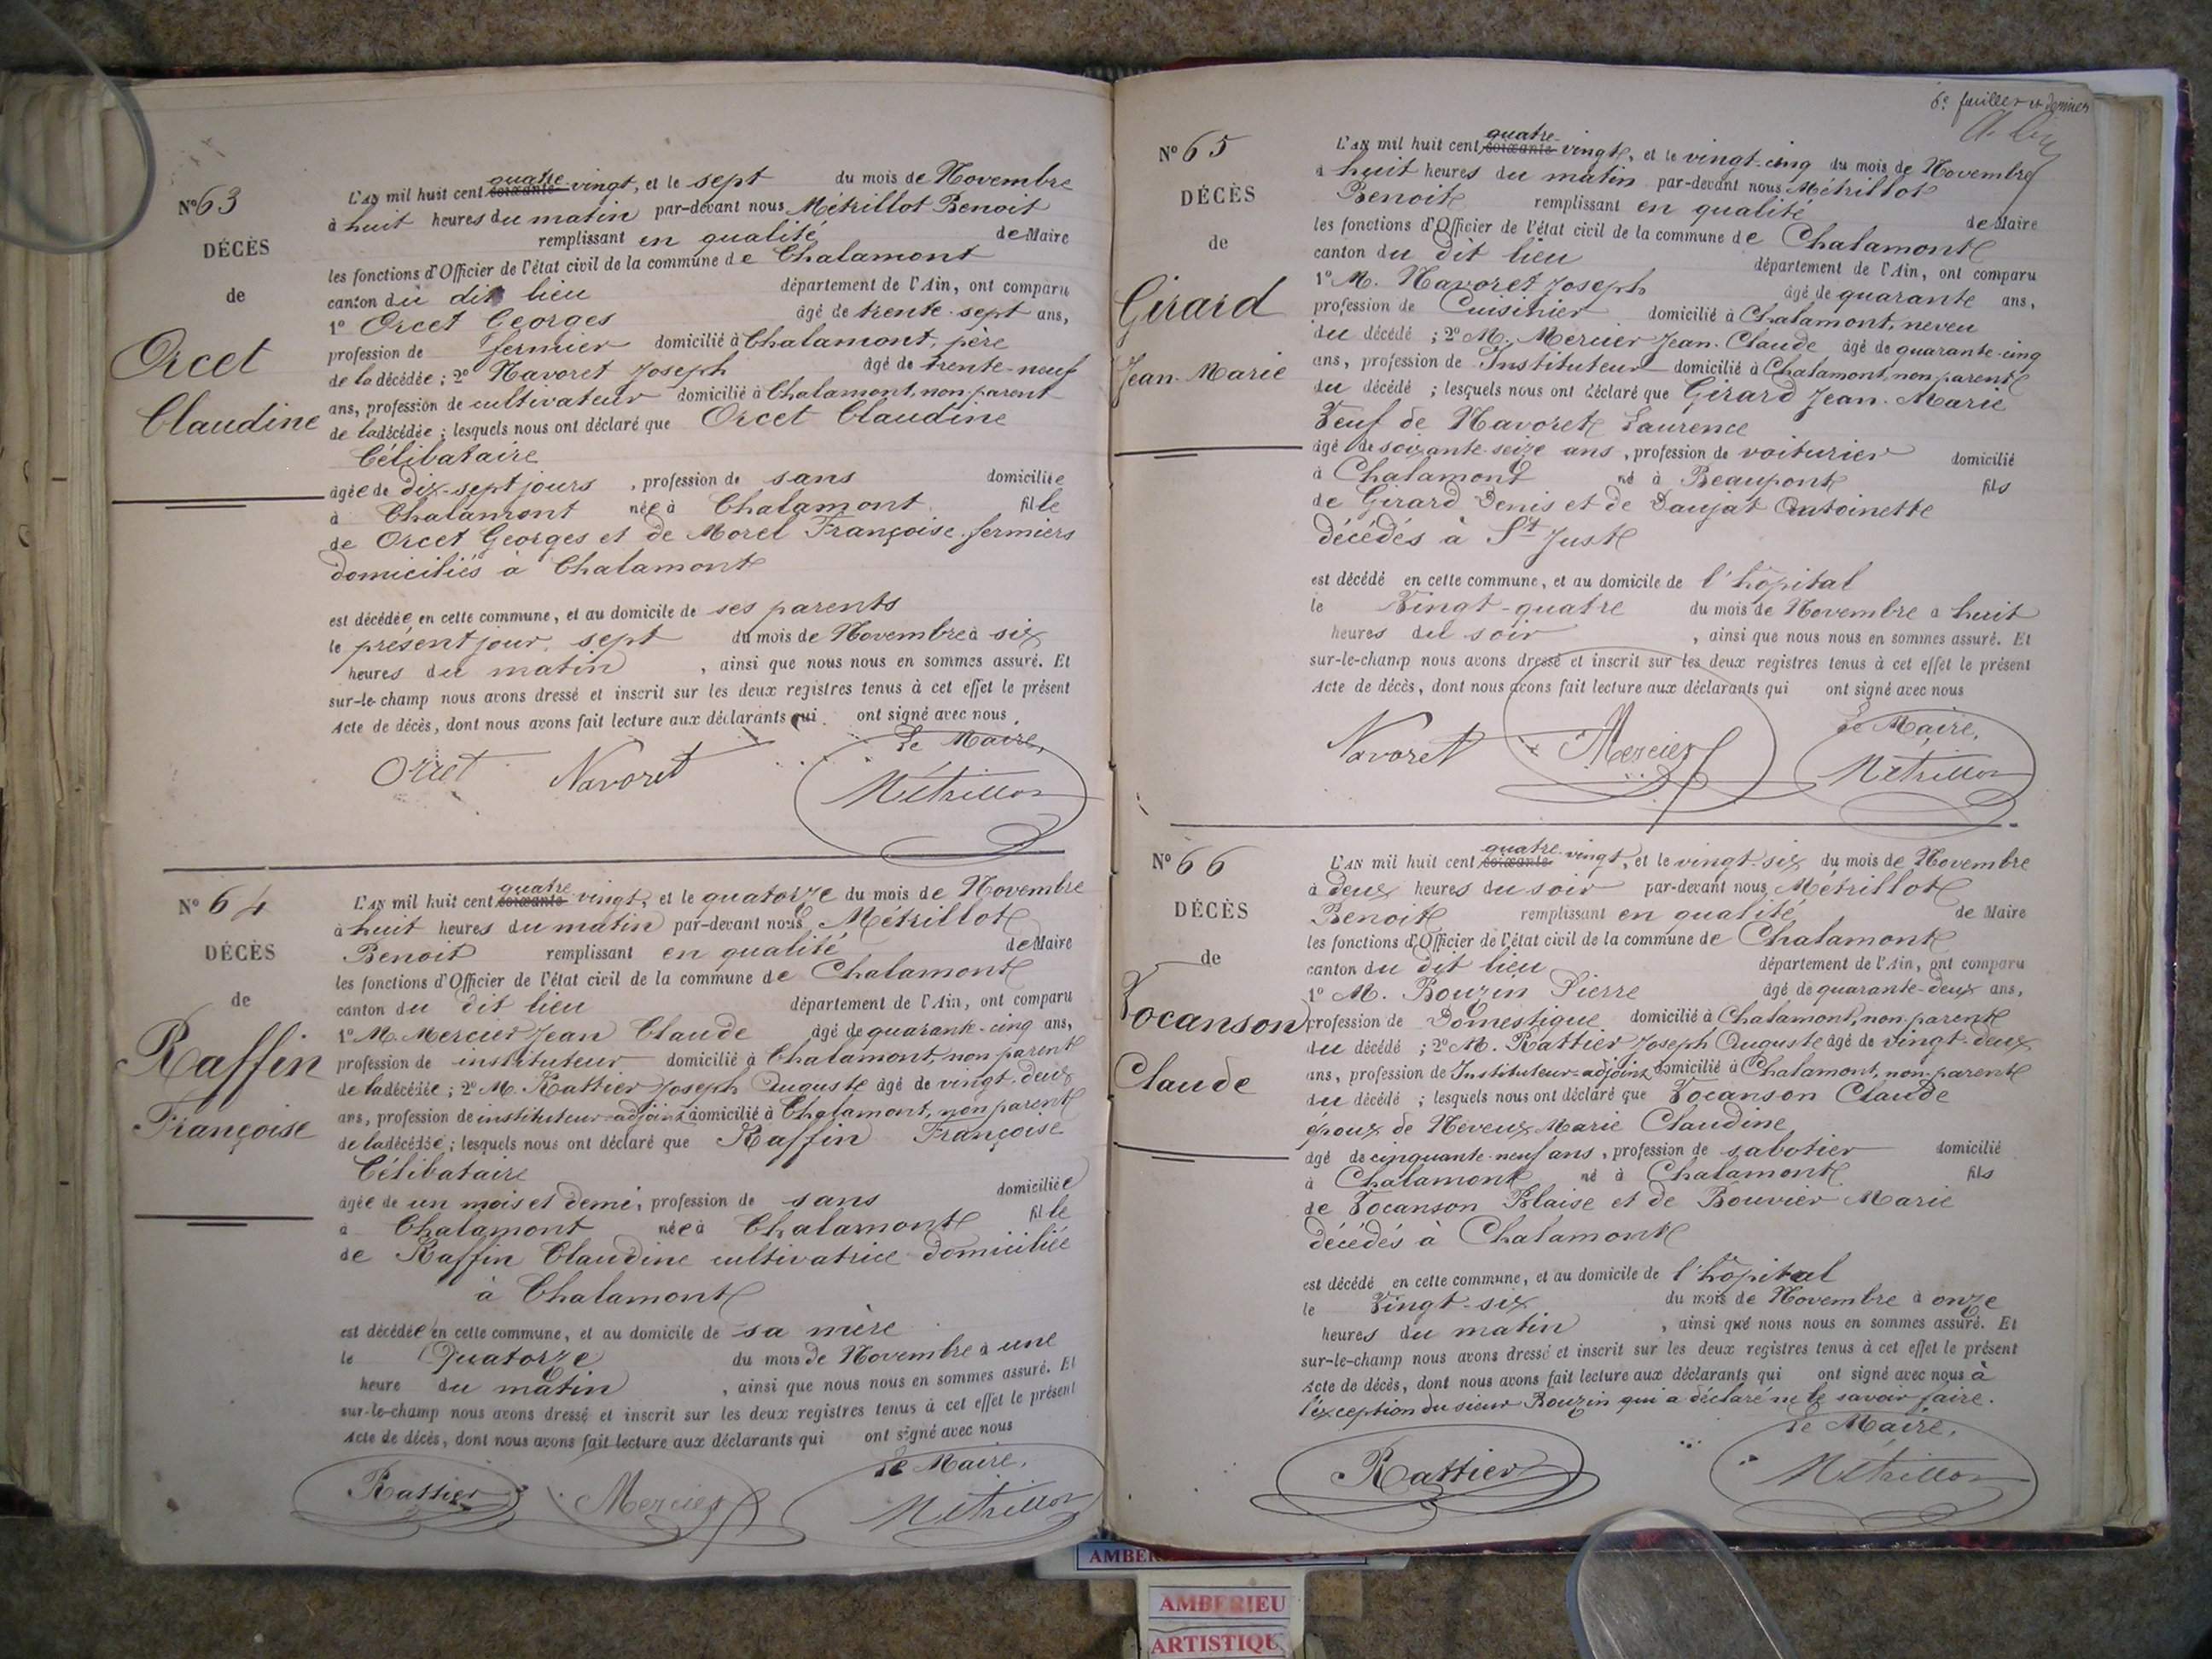 No 63
DÉCÈS
de
Orcet
Claudine
L'AN mil huit cent soixante quatre-vingt, et le sept du mois de Novembre
à huit heures du matin par-devant nous Métrillot Benoit
remplissant en qualité de Maire
les fonctions d'Officier de l'état civil de la commune de Chalamont
canton du dit lieu département de l'Ain, ont comparu
1º Orcet Georges âgé de trente-sept ans,
profession de fermier domicilié à Chalamont, père
de la décédée ; 2º Navoret Joseph âgé de trente-neuf
ans, profession de cultivateur domicilié à Chalamont, non parent
de la décédée ; lesquels nous ont déclaré que Orcet Claudine
Célibataire
âgée de dix-sept jours , profession de sans domiciliée
à Chalamont née à Chalamont fille
de Orcet Georges et de Morel Françoise fermiers
domiciliés à Chalamont
est décédée en cette commune, et au domicile de ses parents
le présent jour, sept du mois de Novembre à six
heures du matin , ainsi que nous nous en sommes assuré. Et
sur-le-champ nous avons dressé et inscrit sur les deux registres tenus à cet effet le présent
Acte de décès, dont nous avons fait lecture aux déclarants qui ont signé avec nous.
Le Maire,
Orcet Navoret Métrillot
No 64
DÉCÈS
de
Raffin
Françoise
L'AN mil huit cent soixante quatre-vingt, et le quatorze du mois de Novembre
à huit heures du matin par-devant nous Métrillot
Benoit remplissant en qualité de Maire
les fonctions d'Officier de l'état civil de la commune de Chalamont
canton du dit lieu département de l'Ain, ont comparu
1º M. Mercier Jean Claude âgé de quarante-cinq ans,
profession de instituteur domicilié à Chalamont, non parent
de la décédée ; 2º M. Rattier Joseph Auguste âgé de vingt-deux
ans, profession de instituteur-adjoint domicilié à Chalamont, non parent
de la décédée ; lesquels nous ont déclaré que Raffin Françoise
Célibataire
âgée de un mois et demi, profession de sans domiciliée
à Chalamont née à Chalamont fille
de Raffin Claudine cultivatrice domiciliée
à Chalamont
est décédée en cette commune, et au domicile de sa mère
le Quatorze du mois de Novembre à une
heure du matin , ainsi que nous nous en sommes assuré. Et
sur-le-champ nous avons dressé et inscrit sur les deux registres tenus à cet effet le présent
Acte de décès, dont nous avons fait lecture aux déclarants qui ont signé avec nous
Le Maire,
Rattier Mercier Métrillot
6e feuillet et dernier
No 65
DÉCÈS
de
Girard
Jean-Marie
L'AN mil huit cent soixante quatre-vingt, et le vingt-cinq du mois de Novembre
à huit heures du matin par-devant nous Métrillot
Benoit remplissant en qualité de Maire
les fonctions d'Officier de l'état civil de la commune de Chalamont
canton du dit lieu département de l'Ain, ont comparu
1º M. Navoret Joseph âgé de quarante ans,
profession de Cuisinier domicilié à Chalamont, neveu
du décédé ; 2º M. Mercier Jean-Claude âgé de quarante-cinq
ans, profession de Instituteur domicilié à Chalamont, non parent
du décédé ; lesquels nous ont déclaré que Girard Jean-Marie
Veuf de Navoret Laurence
âgé de soixante-seize ans , profession de voiturier domicilié
à Chalamont né à Beaupont fils
de Girard Denis et de Daujat Antoinette
décédés à St Just
est décédé en cette commune, et au domicile de l'hôpital
le Vingt-quatre du mois de Novembre à huit
heures du soir , ainsi que nous nous en sommes assuré. Et
sur-le-champ nous avons dressé et inscrit sur les deux registres tenus à cet effet le présent
Acte de décès, dont nous avons fait lecture aux déclarants qui ont signé avec nous
Le Maire,
Navoret Mercier Métrillot
No 66
DÉCÈS
de
Vocanson
Claude
L'AN mil huit cent soixante quatre-vingt, et le vingt-six du mois de Novembre
à deux heures du soir par-devant nous Métrillot
Benoit remplissant en qualité de Maire
les fonctions d'Officier de l'état civil de la commune de Chalamont
canton du dit lieu département de l'Ain, ont comparu
1º M. Bouzin Pierre âgé de quarante-deux ans,
profession de Domestique domicilié à Chalamont, non parent
du décédé ; 2º M. Rattier Joseph Auguste âgé de vingt-deux
ans, profession de Instituteur-adjoint domicilié à Chalamont, non-parent
du décédé ; lesquels nous ont déclaré que Vocanson Claude
époux de Neveux Marie Claudine
âgé de cinquante-neuf ans , profession de sabotier domicilié
à Chalamont né à Chalamont fils
de Vocanson Blaise et de Bouvier Marie
décédés à Chalamont
est décédé en cette commune, et au domicile de l'hôpital
le Vingt-six du mois de Novembre à onze
heures du matin , ainsi que nous nous en sommes assuré. Et
sur-le-champ nous avons dressé et inscrit sur les deux registres tenus à cet effet le présent
Acte de décès, dont nous avons fait lecture aux déclarants qui ont signé avec nous à
l'exception du sieur Bouzin qui a déclaré ne le savoir faire.
Le Maire,
Rattier Métrillot
AMBERIEU
ARTISTIQU